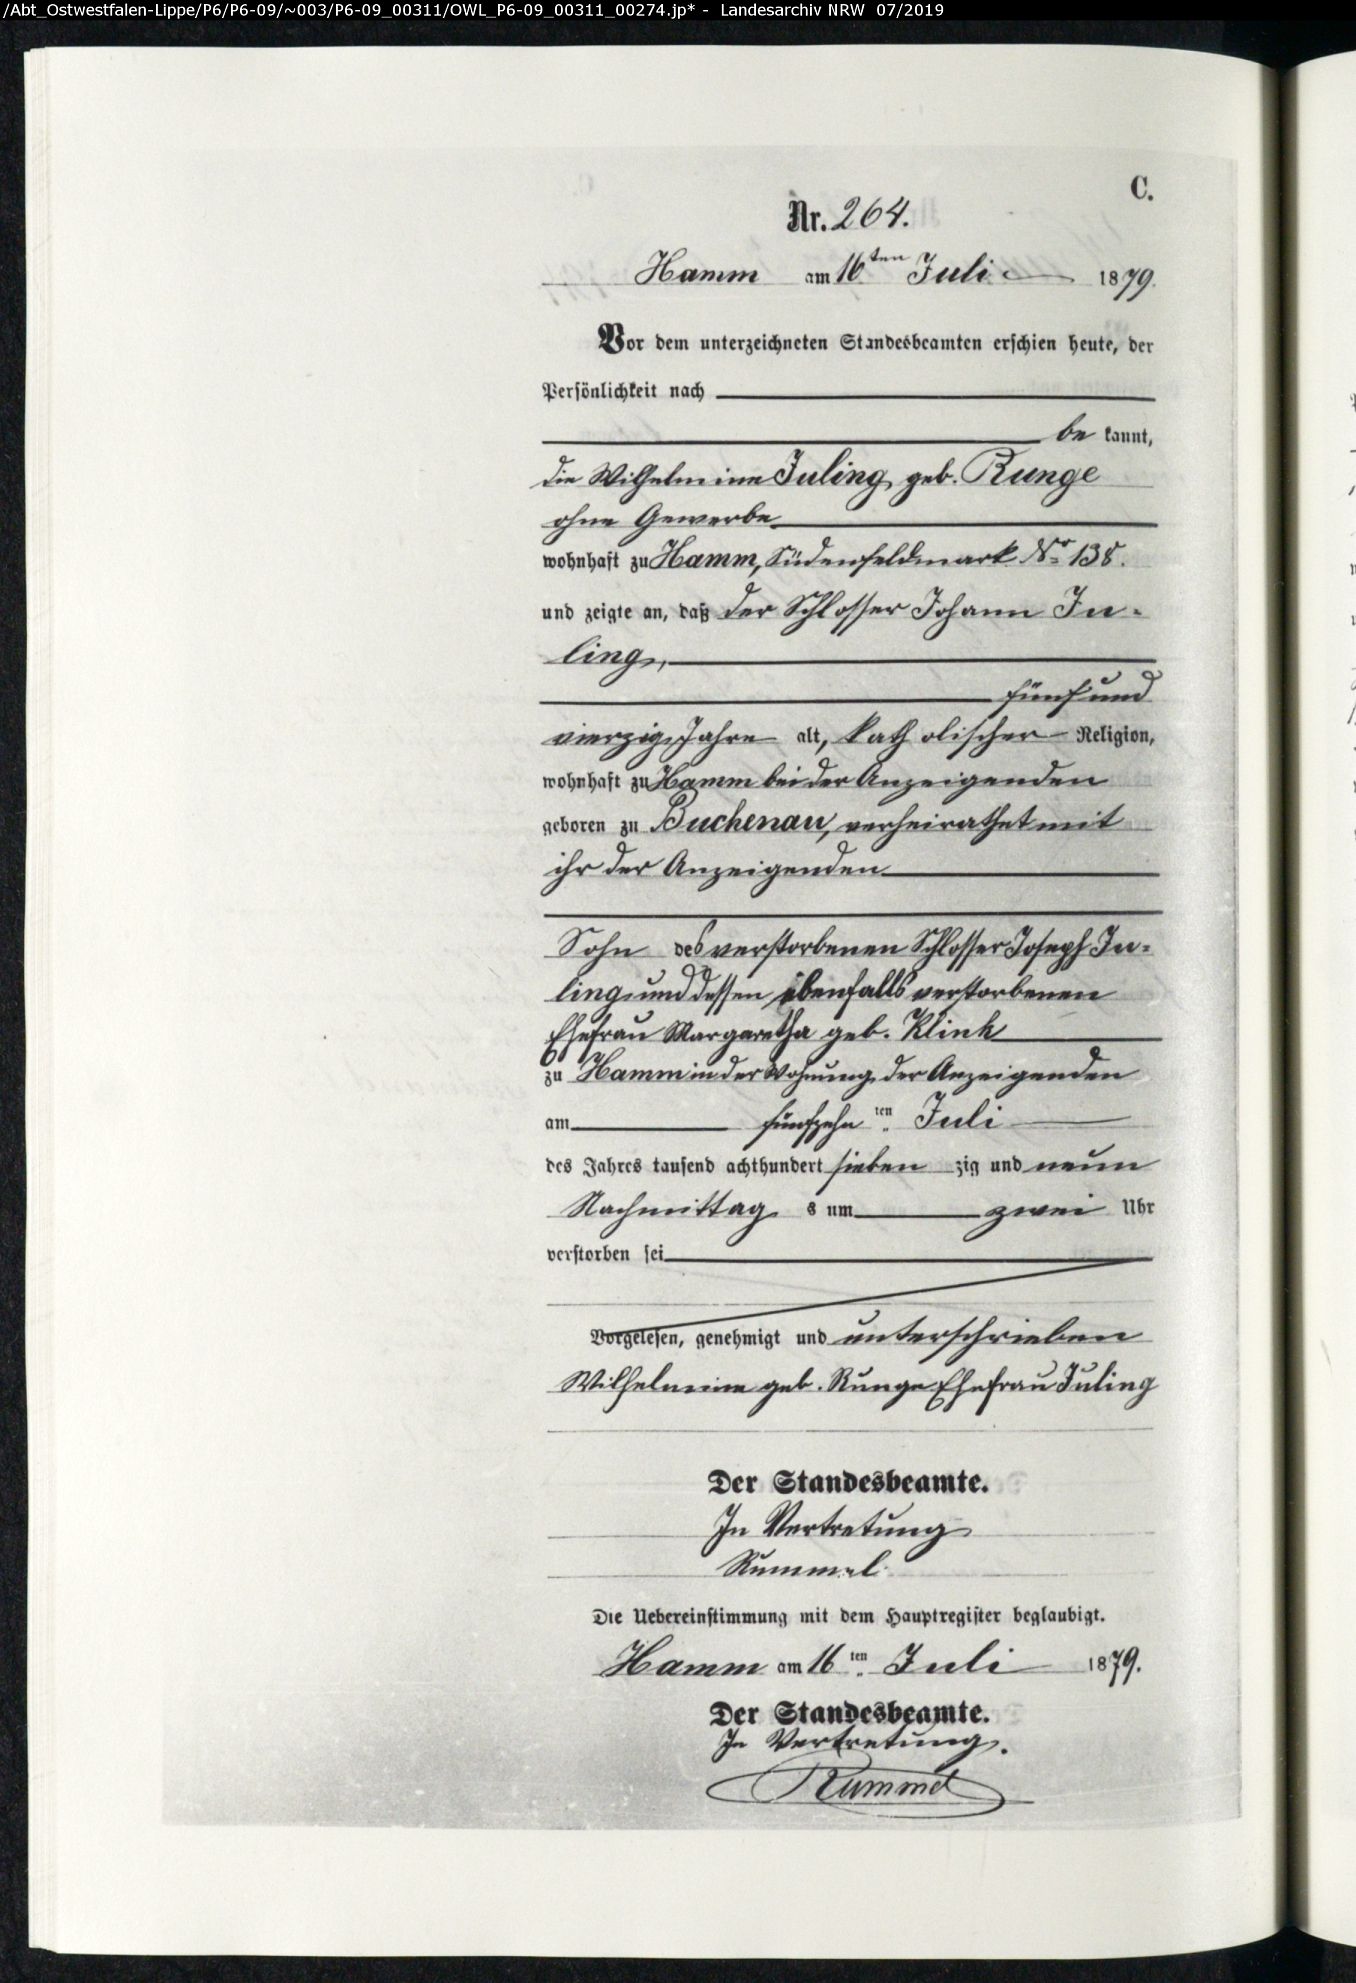 /Abt_Ostwestfalen-Lippe/P6/P6-09/~003/P6-09_00311/OWL_P6-09_00311_00274.jp* - Landesarchiv NRW 07/2019
C.
Nr. 264.
Hamm am 16ten Juli 1879.
Vor dem unterzeichneten Standesbeamten erschien heute, der
Persönlichkeit nach
be kannt,
die Wilhelmine Juling, geb. Runge
ohne Gewerbe
wohnhaft zu Hamm, Südenfeldmark No 138.
und zeigte an, daß der Schlosser Johann Ju-
ling,
fünf und
vierzig Jahre alt, katholischer Religion,
wohnhaft zu Hamm bei der Anzeigenden
geboren zu Buchenau, verheirathet mit
ihr der Anzeigenden
Sohn des verstorbenen Schlosser Joseph Ju-
ling und dessen ebenfalls verstorbenen
Ehefrau Margaretha geb. Klink
zu Hamm in der Wohnung der Anzeigenden
am fünfzehn ten Juli
des Jahres tausend achthundert sieben zig und neun
Nachmittag s um zwei Uhr
verstorben sei
Vorgelesen, genehmigt und unterschrieben
Wilhelmine geb. Runge Ehefrau Juling
Der Standesbeamte.
In Vertretung
Rummel.
Die Uebereinstimmung mit dem Hauptregister beglaubigt.
Hamm am 16ten Juli 1879.
Der Standesbeamte.
In Vertretung.
Rummel